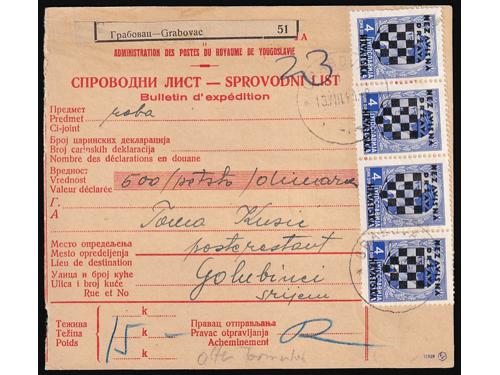 Грабовац—Grabovac 51
А
ADMINISTRATION DES POSTES DU ROYAUME DE YOUGOSLAVIE
23
СПРОВОДНИ ЛИСТ — SPROVODNI LIST
Bulletin d'expédition
Предмет
Predmet roba
Ci-joint
Број царинских декларација
Broj carinskih deklaracija
Nombre des déclarations en douane
Вредност
Vrednost 500/petsto/dinara
Valeur déclarée
Г.
А
Тоша Kusić
Место опредељења
Mesto opredeljenja posterestant
Lieu de destination
Улица и број куће
Ulica i broj kuće Golubinci
Rue et No
srijem
k
Тежина
Težina 15 —
Poids
k
k
Правац отправљања
Pravac otpravljanja R
Acheminement
NEZAVISNA
DRŽAVA
HRVATSKA
4
ЈУГОСЛАВИЈА
NEZAVISNA
DRŽAVA
HRVATSKA
4
NEZAVISNA
DRŽAVA
HRVATSKA
4
NEZAVISNA
DRŽAVA
HRVATSKA
4